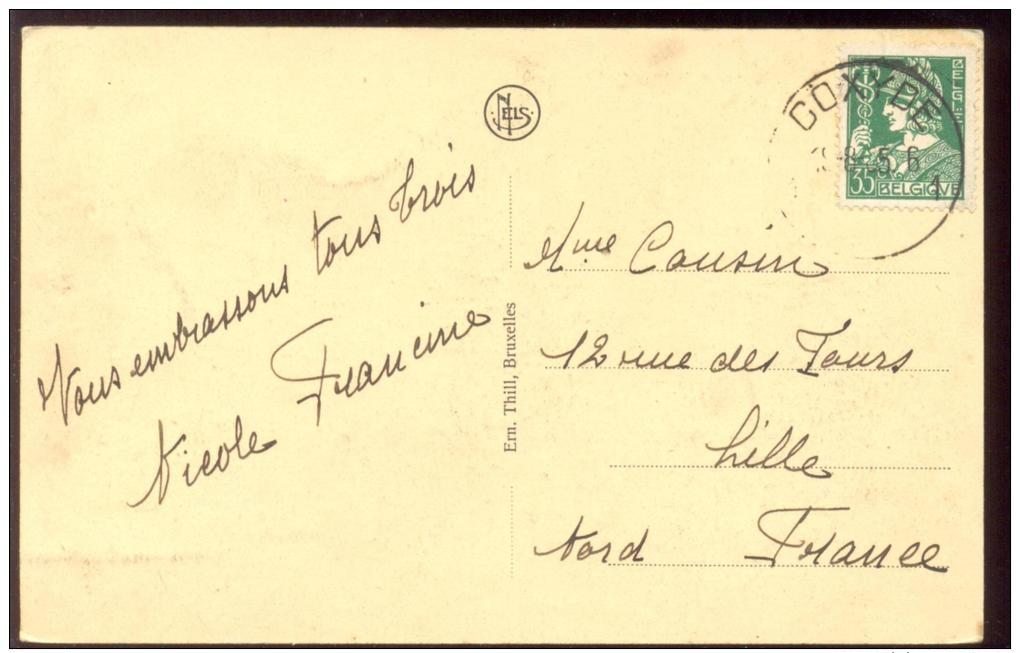 NELS
COXYDE
BELGIE
35 BELGIQUE
1
Vous embrassons tous trois
Nicole Francine
Ern. Thill, Bruxelles
Mme Cousin
12 rue des Tours
Lille
Nord France